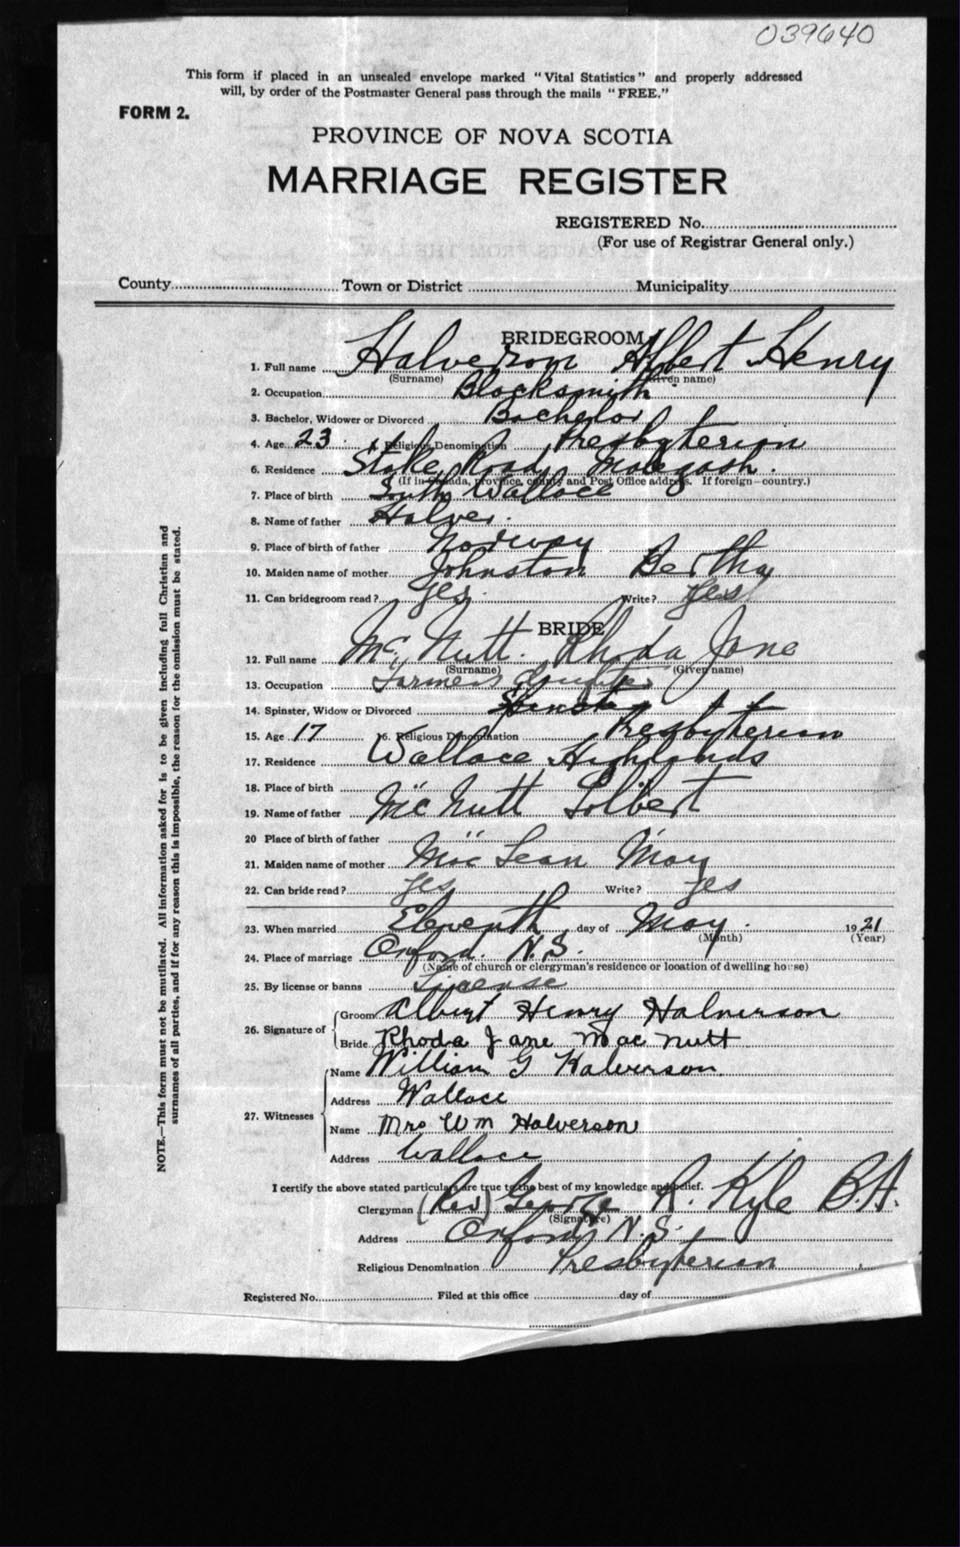 039640
This form if placed in an unsealed envelope marked "Vital Statistics" and properly addressed
will, by order of the Postmaster General pass through the mails "FREE."
FORM 2.
PROVINCE OF NOVA SCOTIA
MARRIAGE REGISTER
REGISTERED No.
(For use of Registrar General only.)
County Town or District Municipality
BRIDEGROOM
1. Full name Halverson Albert Henry
(Surname) (Given name)
2. Occupation Blacksmith
3. Bachelor, Widower or Divorced Bachelor
4. Age 23 Religious Denomination Presbyterian
6. Residence Stake Road, Malagash.
(If in Canada, province, county and Post Office address. If foreign—country.)
7. Place of birth South Wallace
8. Name of father Halver.
9. Place of birth of father Norway
10. Maiden name of mother Johnston Bertha
11. Can bridegroom read? Yes. Write? Yes
BRIDE
12. Full name Mc Nutt. Rhoda Jane
(Surname) (Given name)
13. Occupation Farmers Daughter
14. Spinster, Widow or Divorced Spinster
15. Age 17 16. Religious Denomination Presbyterian
17. Residence Wallace Highlands
18. Place of birth
19. Name of father McNutt
20 Place of birth of father
21. Maiden name of mother MacLean May
22. Can bride read? Yes Write? Yes
23. When married Eleventh day of May. 1921
(Month) (Year)
24. Place of marriage Oxford. N.S.
(Name of church or clergyman's residence or location of dwelling house)
25. By license or banns License
26. Signature of
Groom Albert Henry Halverson
Bride Rhoda Jane MacNutt
27. Witnesses
Name William G Halverson
Address Wallace
Name Mrs Wm Halverson
Address Wallace
I certify the above stated particulars are true to the best of my knowledge and belief.
Clergyman (Rev) George R. Kyle B.A.
(Signature)
Address Oxford N.S.
Religious Denomination Presbyterian
Registered No. Filed at this office day of
NOTE.—This form must not be mutilated. All information asked for is to be given including full Christian and
surnames of all parties, and if for any reason this is impossible, the reason for the omission must be stated.